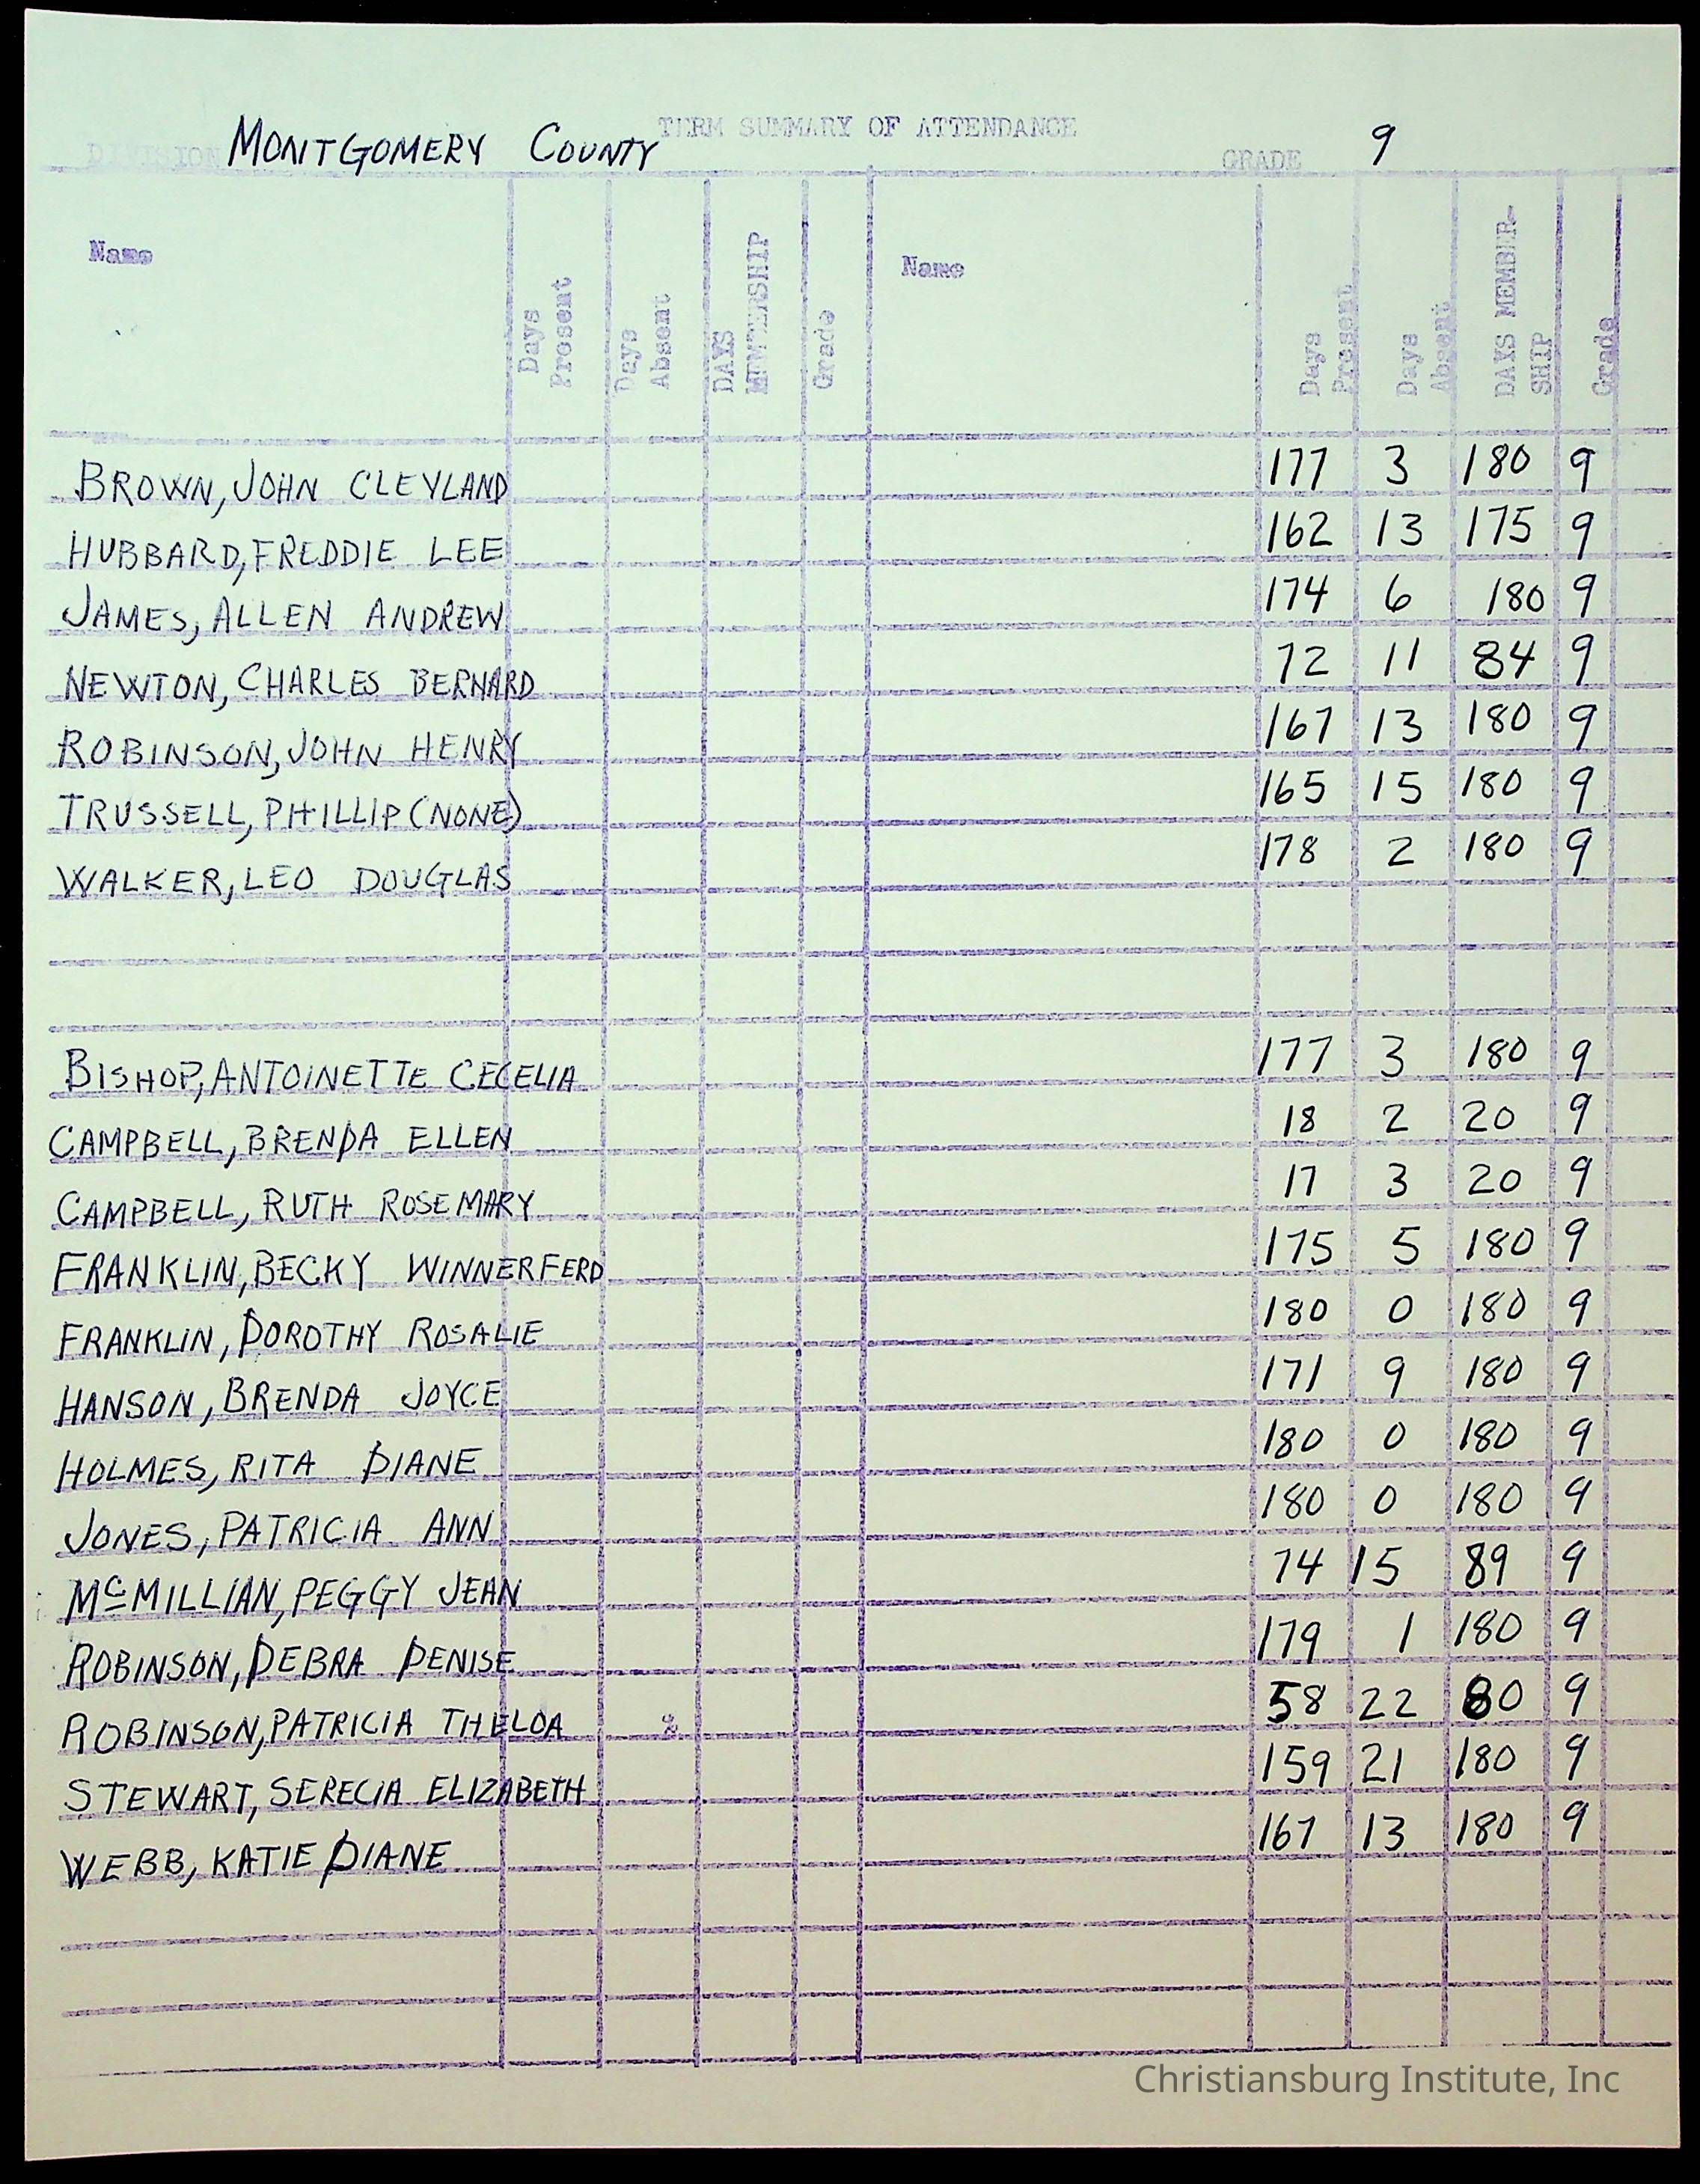 TERM SUMMARY OF ATTENDANCE
DIVISION MONTGOMERY COUNTY GRADE 9
Name Days Present Days Absent DAYS MEMBERSHIP Grade Name Days Present Days Absent DAYS MEMBER-SHIP Grade
BROWN, JOHN CLEYLAND 177 3 180 9
HUBBARD, FREDDIE LEE 162 13 175 9
JAMES, ALLEN ANDREW 174 6 180 9
NEWTON, CHARLES BERNARD 72 11 84 9
ROBINSON, JOHN HENRY 167 13 180 9
TRUSSELL, PHILLIP (NONE) 165 15 180 9
WALKER, LEO DOUGLAS 178 2 180 9
BISHOP, ANTOINETTE CECELIA 177 3 180 9
CAMPBELL, BRENDA ELLEN 18 2 20 9
CAMPBELL, RUTH ROSEMARY 17 3 20 9
FRANKLIN, BECKY WINNERFERD 175 5 180 9
FRANKLIN, DOROTHY ROSALIE 180 0 180 9
HANSON, BRENDA JOYCE 171 9 180 9
HOLMES, RITA DIANE 180 0 180 9
JONES, PATRICIA ANN 180 0 180 9
McMILLIAN, PEGGY JEAN 74 15 89 9
ROBINSON, DEBRA DENISE 179 1 180 9
ROBINSON, PATRICIA THELOA 58 22 80 9
STEWART, SERECIA ELIZABETH 159 21 180 9
WEBB, KATIE DIANE 167 13 180 9
Christiansburg Institute, Inc